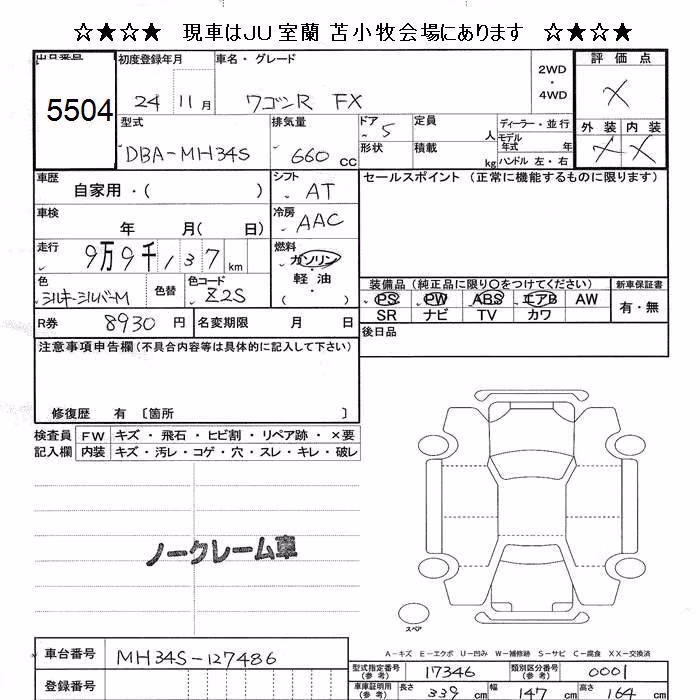 ☆★☆★ 現車はJU室蘭 苫小牧会場にあります ☆★☆★
出品番号 初度登録年月 車名・グレード 2WD・4WD 評価点
5504 24 11月 ワゴンR FX X
型式 排気量 ドア 定員 人 ディーラー・並行 外装 内装
DBA-MH34S 660cc 5 形状 積載 kg モデル年式 年 ハンドル 左・右 X X
車歴 自家用・( ) シフト AT セールスポイント(正常に機能するものに限ります)
車検 年 月(日) 冷房 AAC
走行 9万9千137km 燃料 ガソリン・軽油・( )
色 シルキーシルバーM 色替 色コード Z2S
装備品(純正品に限り〇をつけてください) 新車保証書
PS PW ABS エアB AW 有・無
SR ナビ TV カワ
R券 8930円 名変期限 月 日 後日品
注意事項申告欄(不具合内容等は具体的に記入して下さい)
修復歴 有 [箇所 ]
検査員 FW キズ・飛石・ヒビ割・リペア跡・×要
記入欄 内装 キズ・汚レ・コゲ・穴・スレ・キレ・破レ
ノークレーム車
スペア
A-キズ E-エクボ U-凹み W-補修跡 S-サビ C-腐食 XX-交換済
車台番号 MH34S-127486 型式指定番号(参考) 17346 類別区分番号(参考) 0001
登録番号 車庫証明用(参考) 長さ 339cm 幅 147cm 高さ 164cm